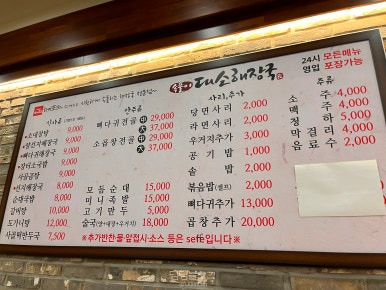 대소해장국
24시 모든메뉴
영업 포장가능
안주류
사리,추가
주류
9,000
9,000
•뼈다귀해장국 9,000
9,000
사골곰탕 9,000
•선지해장국 9,000
순대국밥 9,000
갈비탕 10,000
도가니탕 12,000
사골떡만두국 7,500
뼈다귀전골 中 29,000
大 37,000
소곱창전골 中 29,000
大 37,000
모듬순대 15,000
미니족발 15,000
고기만두 5,000
술국 18,000
당면사리 2,000
라면사리 2,000
우거지추가 3,000
공기밥 1,000
솥밥 2,000
볶음밥(셀프) 2,000
뼈다귀추가 13,000
곱창추가 20,000
소주 4,000
맥주 4,000
청하 5,000
막걸리 4,000
음료수 2,000
※추가반찬·물·앞접시·소스 등은 self입니다※